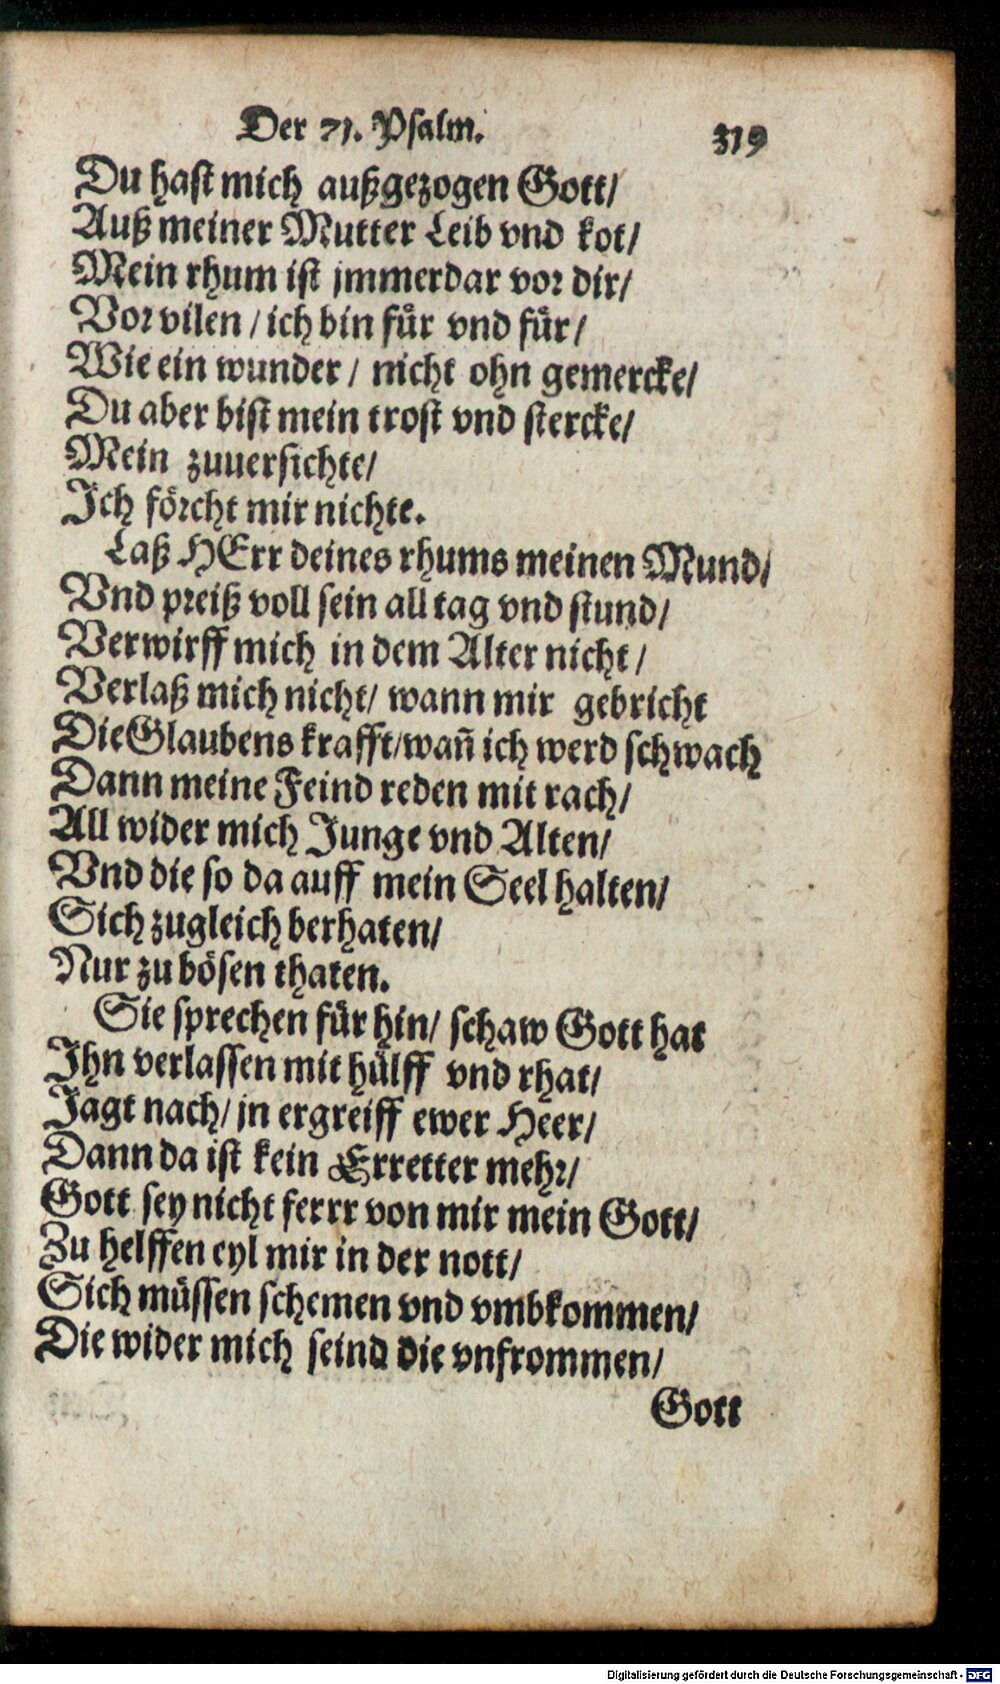 Der 71. Psalm. 319
Du hast mich außgezogen Gott/
Auß meiner Mutter Leib vnd kot/
Mein rhum ist jmmerdar vor dir/
Vor vilen / ich bin fuͤr vnd fuͤr/
Wie ein wunder / nicht ohn gemercke/
Du aber bist mein trost vnd stercke/
Mein zuuersichte/
Ich foͤrcht mir nichte.
Laß HErr deines rhums meinen Mund/
Vnd preiß voll sein all tag vnd stund/
Verwirff mich in dem Alter nicht /
Verlaß mich nicht/ wann mir gebricht
Die Glaubens krafft/wañ ich werd schwach
Dann meine Feind reden mit rach/
All wider mich Junge vnd Alten/
Vnd die so da auff mein Seel halten/
Sich zugleich berhaten/
Nur zu boͤsen thaten.
Sie sprechen fuͤr hin/ schaw Gott hat
Ihn verlassen mit huͤlff vnd rhat/
Jagt nach/ jn ergreiff ewer Heer/
Dann da ist kein Erretter mehr/
Gott sey nicht ferrr von mir mein Gott/
Zu helffen eyl mir in der nott/
Sich muͤssen schemen vnd vmbkommen/
Die wider mich seind die vnfrommen/
Gott
Digitalisierung gefördert durch die Deutsche Forschungsgemeinschaft - DFG